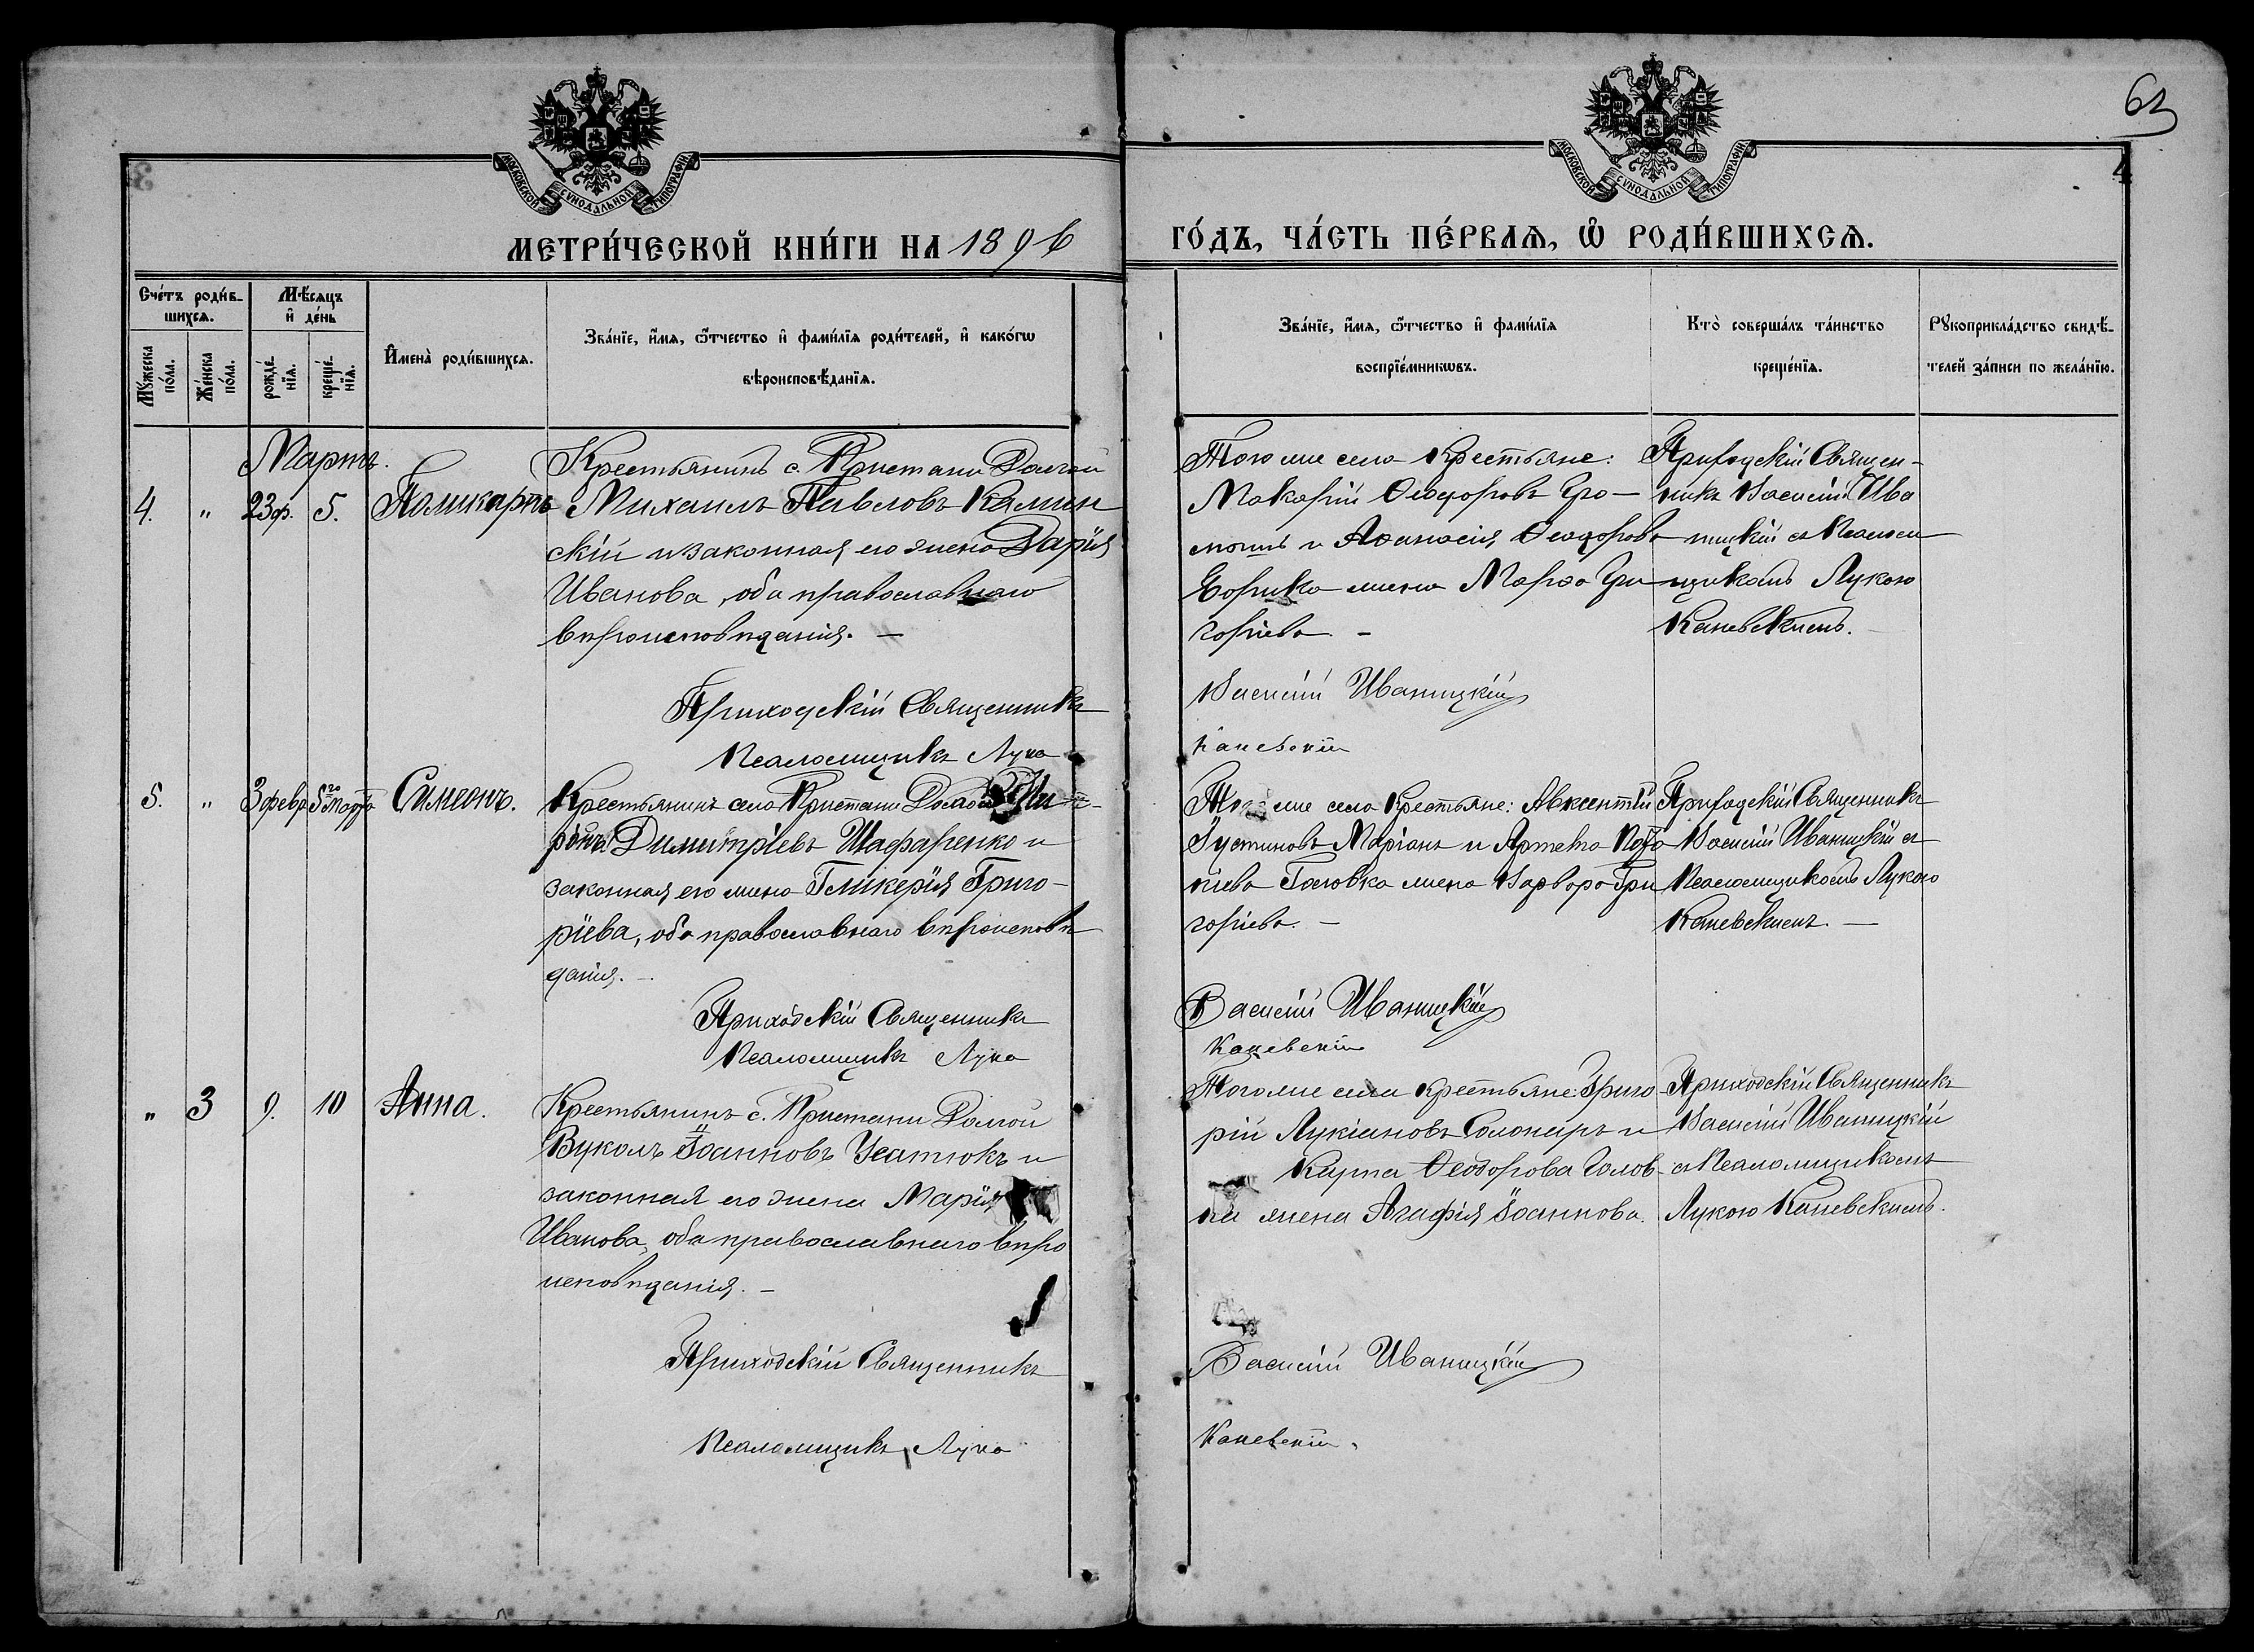 62
МОСКОВСКОЙ СУНОДАЛЬНОЙ ТИПОГРАФІИ
МОСКОВСКОЙ СУНОДАЛЬНОЙ ТИПОГРАФІИ
МЕТРИ́ЧЕСКОЙ КНИ́ГИ НА 1896
ГО́ДЪ, ЧА́СТЬ ПЕ́РВАѦ, Ѡ РОДИ́ВШИХСѦ.
Сче́тъ роди́в-
шихсѧ.
Мѣ́сѧцъ
и҆ де́нь
Мꙋ́жеска
по́ла.
Же́нска
по́ла.
рожде́-
нїѧ.
креще́-
нїѧ.
И҆мена̀ роди́вшихсѧ.
Зва́нїе, и҆́мѧ, ѻ҆́тчество и҆ фами́лїѧ роди́телей, и҆ како́гѡ
вѣроисповѣ́данїѧ.
Зва́нїе, и҆́мѧ, ѻ҆́тчество и҆ фами́лїѧ
воспрїе́мникѡвъ.
Кто̀ соверша́лъ та́инство
креще́нїѧ.
Рꙋкоприкла́дство свидѣ́-
телей за́писи по жела́нїю.
Мартъ.
4.
"
23 ф.
5.
Поликарпъ
Крестьянинъ с. Пристани Долгой
Михаилъ Павловъ Камин
скій и законная его жена Дарія
Иванова, оба православнаго
вѣроисповѣданія. —
Приходскій Священникъ
Псаломщикъ Лука
Того же села Крестьяне:
Макарій Ѳеодоровъ
и Аѳанасія Ѳеодорова
жена Марѳа Гри
горіева. -
Василій Иваницкій
Каневскій
Приходскій Священ-
никъ Василій Ива
ницкій съ Псалом
щикомъ Лукою
Каневскимъ.
5.
"
3 февр
5го Марта
Симеонъ.
Крестьянинъ села Пристани Долгой
Димитріевъ Шафаренко и
законная его жена Гликерія Григо-
ріева, оба православнаго вѣроисповѣ
данія. -
Приходскій Священникъ
Псаломщикъ Лука
Того же села Крестьяне: Авксентій
Іустиновъ Маріанъ и
Головка жена Варвара Гри
горіева. —
Василій Иваницкій
Каневскій
Приходскій Священникъ
Василій Иваницкій съ
Псаломщикомъ Лукою
Каневскимъ. —
"
3
9.
10
Анна.
Крестьянинъ с. Пристани Долгой
Вуколъ Іоанновъ Усатюкъ и
законная его жена Марія
Иванова, оба православнаго вѣро
исповѣданія. -
Приходскій Священникъ
Псаломщикъ Лука
Того же села крестьяне: Григо-
рій Лукіановъ Солонарь и
Карпа Ѳеодорова Голов-
ка жена Агафія Іоаннова.
Василій Иваницкій
Каневскій.
Приходскій Священникъ
Василій Иваницкій
съ Псаломщикомъ
Лукою Каневскимъ.